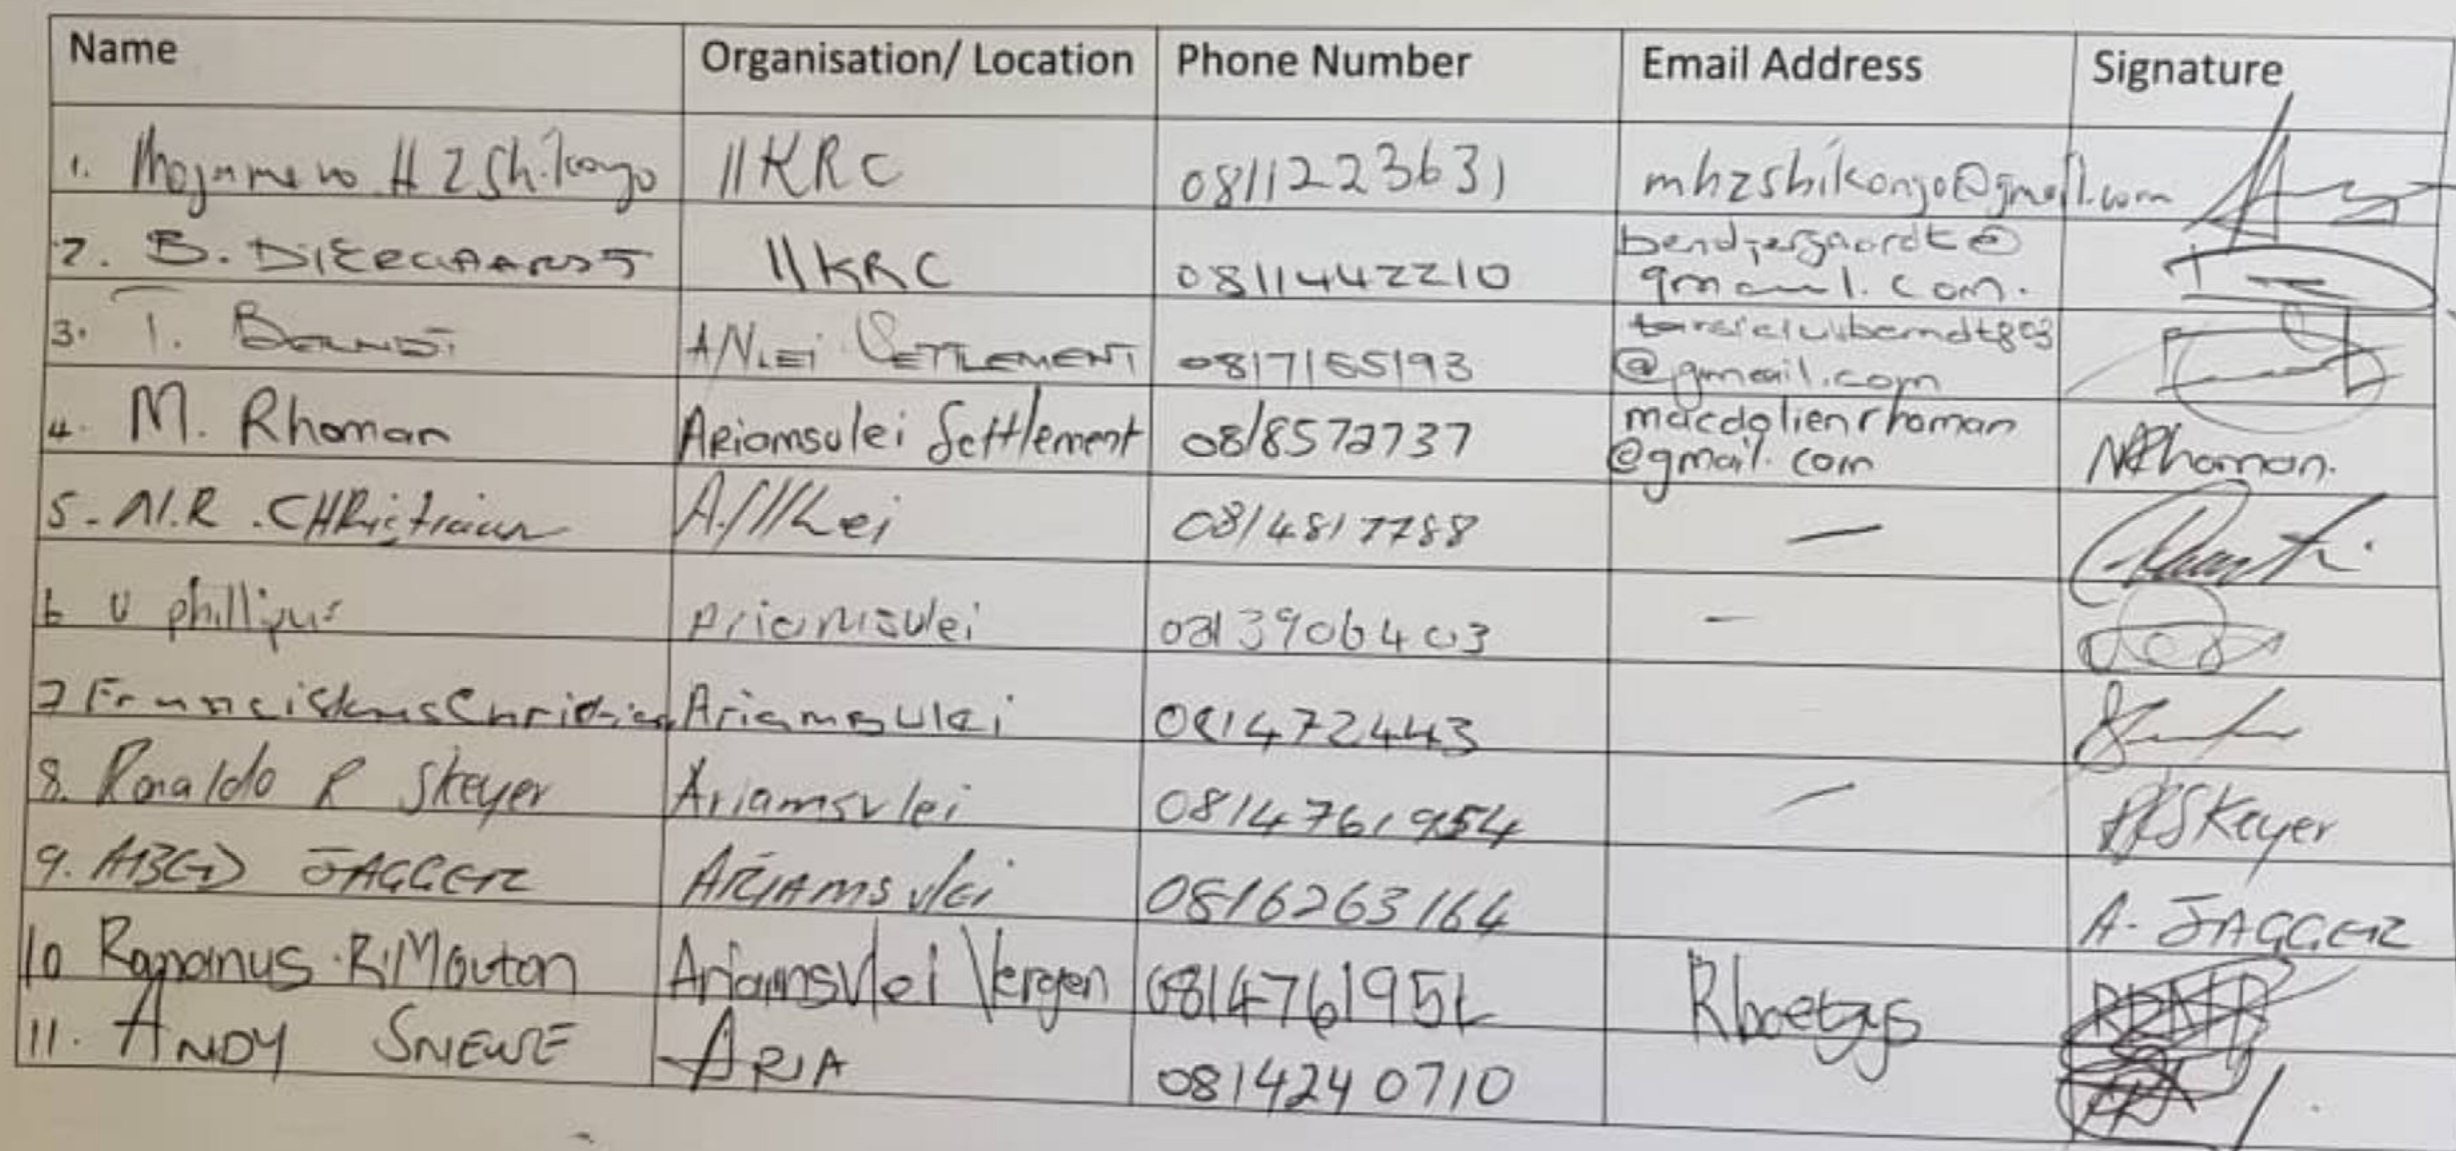 Name Organisation/ Location Phone Number Email Address Signature
1. H Z Shikongo //KRC 0811223631 mhzshikongo@gmail.com
2. B. //KRC 0811442210 @
gmail.com.
3. T. Berndt A/VLEI SETTLEMENT 0817165193
@gmail.com
4. M. Rhoman Ariamsvlei Settlement 0818572737 macdolienrhoman
@gmail.com MRhoman.
5. N.R. CHRistiaan 0814817788 —
6 U phillipus Ariamsvlei 0813906403 –
7 Franciskus Ariamsvlei 081472443
8. Ronaldo R Skeyer Ariamsvlei 0814761954 – RRSKeyer
9. JAGGER ARIAMSvlei 0816263164 A. JAGGER
10 R. Mouton Ariamsvlei
11. ANDY ARIA 0814240710